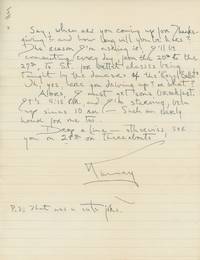 Say, when are you coming up for Thanks-
giving? and how long will you be here?
The reason I'm asking is, I'll be
commuting every day, from the 20th to the
29th, to St. for ballet classes being
taught by the dancers of the "Royal Ballet"
Oh, yes, are you driving up? or what?
Alors, I must get some breakfast,
It's 11:15 AM and I'm starving, been
up since 10 AM — Such an early
hour for me too —
Drop a line — otherwise, see
you on 24th or thereabouts,
Murray
P.S. That was a cute joke.